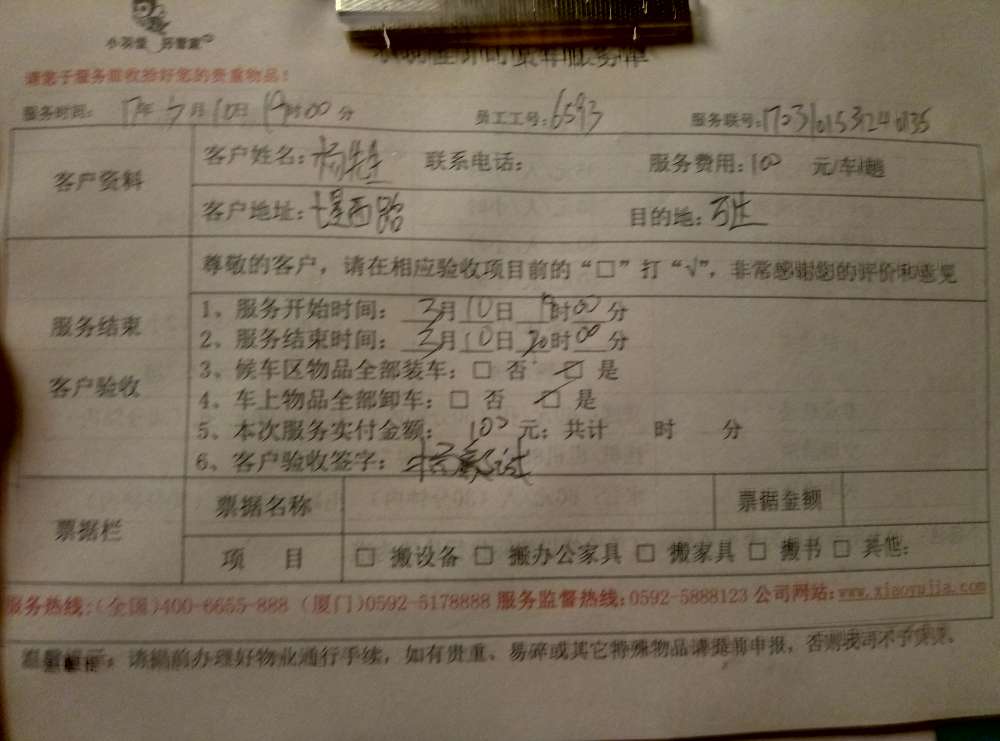 请您于服务前收拾好您的贵重物品!
服务时间: 17年3月10日19时00分 员工工号:6593 服务联号:17031015324
客户资料 客户姓名: 联系电话: 服务费用:100 元/车/趟
客户地址:堤西路 目的地:
尊敬的客户，请在相应验收项目前的“□”打“√”，非常感谢您的评价和意见
服务结束
客户验收
1、服务开始时间: 3月10日19时00分
2、服务结束时间: 3月10日20时00分
3、候车区物品全部装车: □ 否 ☑ 是
4、车上物品全部卸车: □ 否 ☑ 是
5、本次服务实付金额: 100 元; 共计 时 分
6、客户验收签字:
票据栏 票据名称 票据金额
项 目 □ 搬设备 □ 搬办公家具 □ 搬家具 □ 搬书 □ 其他:
服务热线:(全国)400-6655-888 (厦门)0592-5178888 服务监督热线:0592-5888123 公司网站:www.xiaoyujia.com
请提前办理好物业通行手续，如有贵重、易碎或其它特殊物品请提前申报，否则我司不予负责。